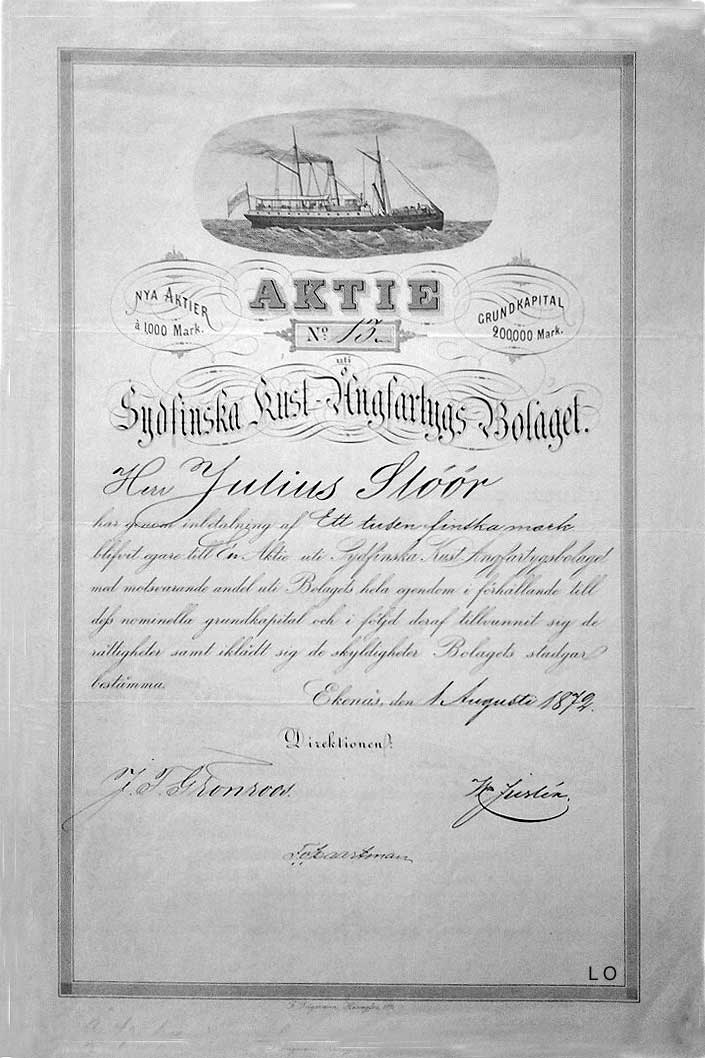 AKTIE
NYA AKTIER
à 1000 Mark.
GRUNDKAPITAL
200,000 Mark.
No 15
uti
Sydfinska Kust-Ångfartygs-Bolaget.
Herr Julius Slöör
har genom inbetalning af Ett tusen finska mark
blifvit egare till En Aktie uti Sydfinska Kust Ångfartygsbolaget
med motsvarande andel uti Bolagets hela egendom i förhållande till
dess nominella grundkapital och i följd deraf tillvunnit sig de
rättigheter samt iklädt sig de skyldigheter Bolagets stadgar
bestämma.
Ekenäs, den 1 Augusti 1872.
Direktionen:
J. F. Grönroos
Hisinger
LO